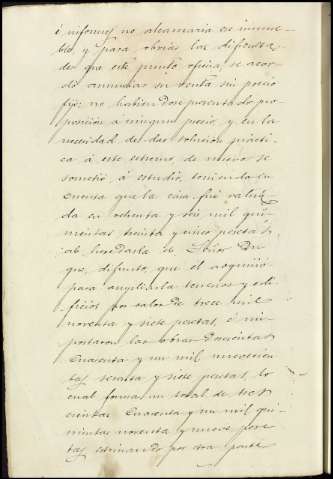 é informes no alcanzaria ese inmue-
ble, y para obviar las dificulta-
des que este punto ofrecia, se acor-
dó anunciar su venta sin precio
fijo: no habiendose presentado pro-
posición á ningun precio, y en la
necesidad de dar solución practi-
ca á este extremo, de nuevo se
sometió á estudio, teniendo en
cuenta que la casa fué valua-
da en ochenta y seis mil qui-
nientas treinta y cinco pesetas
al heredarla el Señor Du-
que, difunto, que él adquirió
para ampliarla terrenos y edi-
ficios por valor de trece mil
noventa y siete pesetas, é im-
portaron las obras doscientas
cuarenta y un mil novecien-
tas sesenta y siete pesetas, lo
cual forma un total de tres-
cientas cuarenta y un mil qui-
nientas noventa y nueve pese-
tas, estimando por otra parte